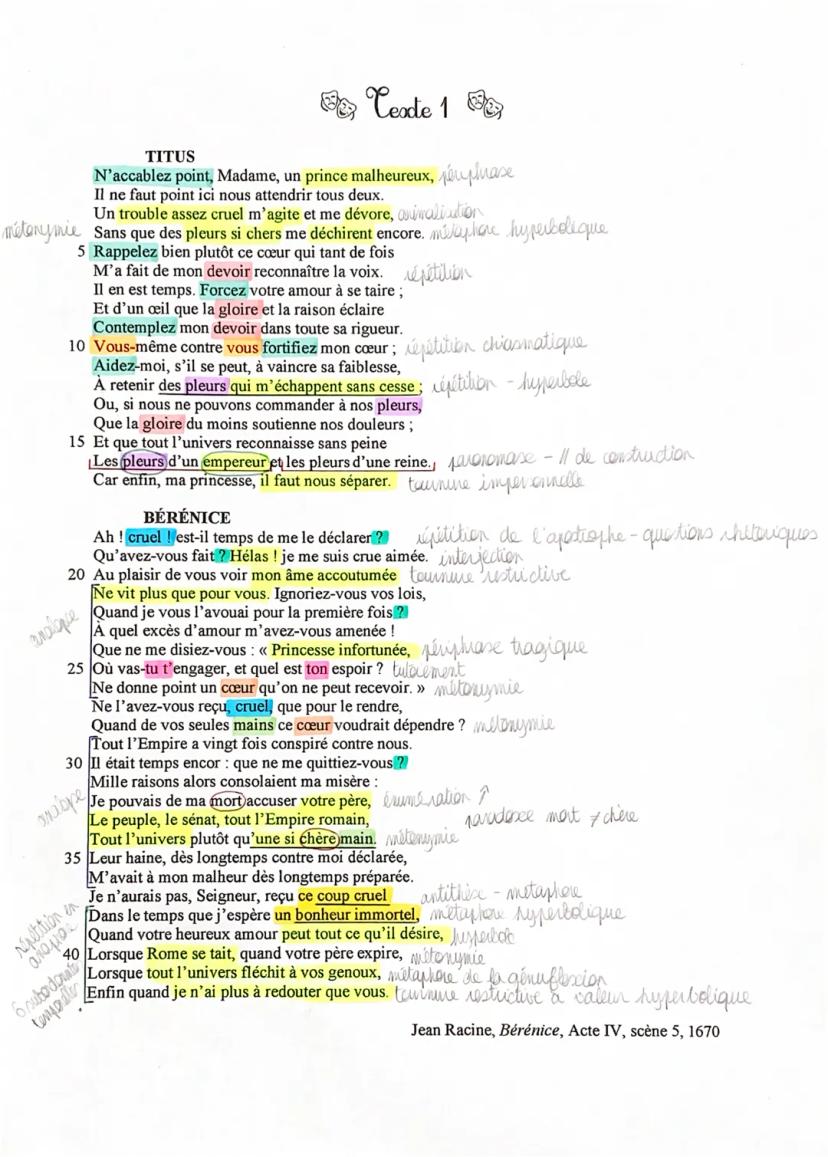 Texte 1
TITUS
N'accablez point, Madame, un prince malheureux, périphrase
Il ne faut point ici nous attendrir tous deux.
Un trouble assez cruel m'agite et me dévore, animalisation
métonymie Sans que des pleurs si chers me déchirent encore. métaphore hyperbolique
5 Rappelez bien plutôt ce cœur qui tant de fois
M'a fait de mon devoir reconnaître la voix. répétition
Il en est temps. Forcez votre amour à se taire ;
Et d'un œil que la gloire et la raison éclaire
Contemplez mon devoir dans toute sa rigueur.
10 Vous-même contre vous fortifiez mon cœur ; répétition chiasmatique
Aidez-moi, s'il se peut, à vaincre sa faiblesse,
À retenir des pleurs qui m'échappent sans cesse ; répétition - hyperbole
Ou, si nous ne pouvons commander à nos pleurs,
Que la gloire du moins soutienne nos douleurs ;
15 Et que tout l'univers reconnaisse sans peine
Les pleurs d'un empereur et les pleurs d'une reine. paronomase - // de construction
Car enfin, ma princesse, il faut nous séparer. tournure impersonnelle
BÉRÉNICE
Ah ! cruel ! est-il temps de me le déclarer ? répétition de l'apostrophe - questions rhétoriques
Qu'avez-vous fait ? Hélas ! je me suis crue aimée. interjection
20 Au plaisir de vous voir mon âme accoutumée tournure restrictive
Ne vit plus que pour vous. Ignoriez-vous vos lois,
Quand je vous l'avouai pour la première fois ?
À quel excès d'amour m'avez-vous amenée !
Que ne me disiez-vous : « Princesse infortunée, périphrase tragique
25 Où vas-tu t'engager, et quel est ton espoir ? tutoiement
Ne donne point un cœur qu'on ne peut recevoir. » métonymie
Ne l'avez-vous reçu, cruel, que pour le rendre,
Quand de vos seules mains ce cœur voudrait dépendre ? métonymie
Tout l'Empire a vingt fois conspiré contre nous.
30 Il était temps encor : que ne me quittiez-vous ?
Mille raisons alors consolaient ma misère :
Je pouvais de ma mort accuser votre père, énumération ↑
Le peuple, le sénat, tout l'Empire romain, paradoxe mort ≠ chère
Tout l'univers plutôt qu'une si chère main. métonymie
35 Leur haine, dès longtemps contre moi déclarée,
M'avait à mon malheur dès longtemps préparée.
Je n'aurais pas, Seigneur, reçu ce coup cruel antithèse - métaphore
Dans le temps que j'espère un bonheur immortel, métaphore hyperbolique
Quand votre heureux amour peut tout ce qu'il désire, hyperbole
40 Lorsque Rome se tait, quand votre père expire, métonymie
Lorsque tout l'univers fléchit à vos genoux, métaphore de la génuflexion
Enfin quand je n'ai plus à redouter que vous. tournure restrictive à valeur hyperbolique
répétition en
Jean Racine, Bérénice, Acte IV, scène 5, 1670